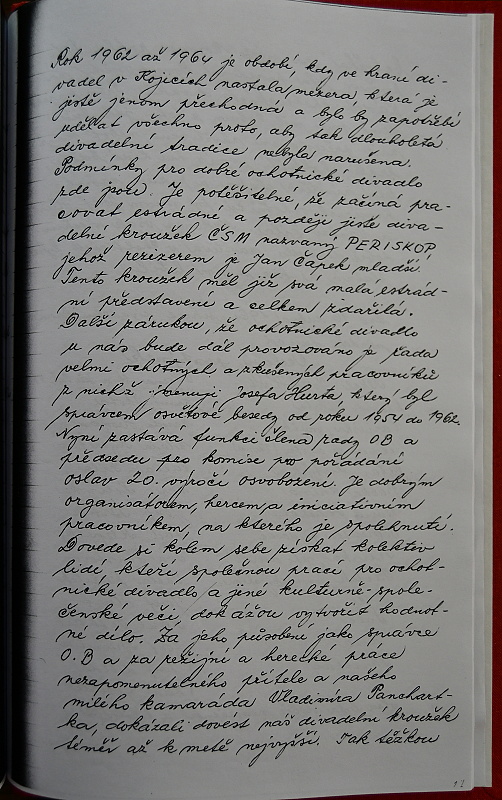 Rok 1962 až 1964 je období, kdy ve hraní di-
vadel v Kojicích nastala mezera, která je
jistě jenom přechodná a bylo by zapotřebí
udělat všechno proto, aby tak dlouholetá
divadelní tradice nebyla narušena.
Podmínky pro dobré ochotnické divadlo
zde jsou. Je potěšitelné, že začíná pra-
covat estrádní a později jistě diva-
delní kroužek ČSM nazvaný PERISKOP,
jehož režizerem je Jan Čapek mladší.
Tento kroužek měl již svá malá estrád-
ní představení a celkem zdařilá.
Další zárukou, že ochotnické divadlo
u nás bude dál provozováno je řada
velmi ochotných a zkušených pracovníků
z nichž jmenuji Josefa Hurta, který byl
správcem osvětové besedy od roku 1954 do 1962.
Nyní zastává funkci člena rady OB a
předsedu pro komise pro pořádání
oslav 20. výročí osvobození. Je dobrým
organisátorem, hercem, a iniciativním
pracovníkem, na kterého je spolehnutí.
Dovede si kolem sebe získat kolektiv
lidí, kteří společnou prací pro ochot-
nické divadlo a jiné kulturně-spole-
čenské věci, dokážou vytvořit hodnot-
né dílo. Za jeho působení jako správce
O.B a za režijní a herecké práce
nezapomenutelného přítele a našeho
milého kamaráda Vladimíra Panchart-
ka, dokázali dovést náš divadelní kroužek
téměř až k metě nejvyšší. Tak těžkou